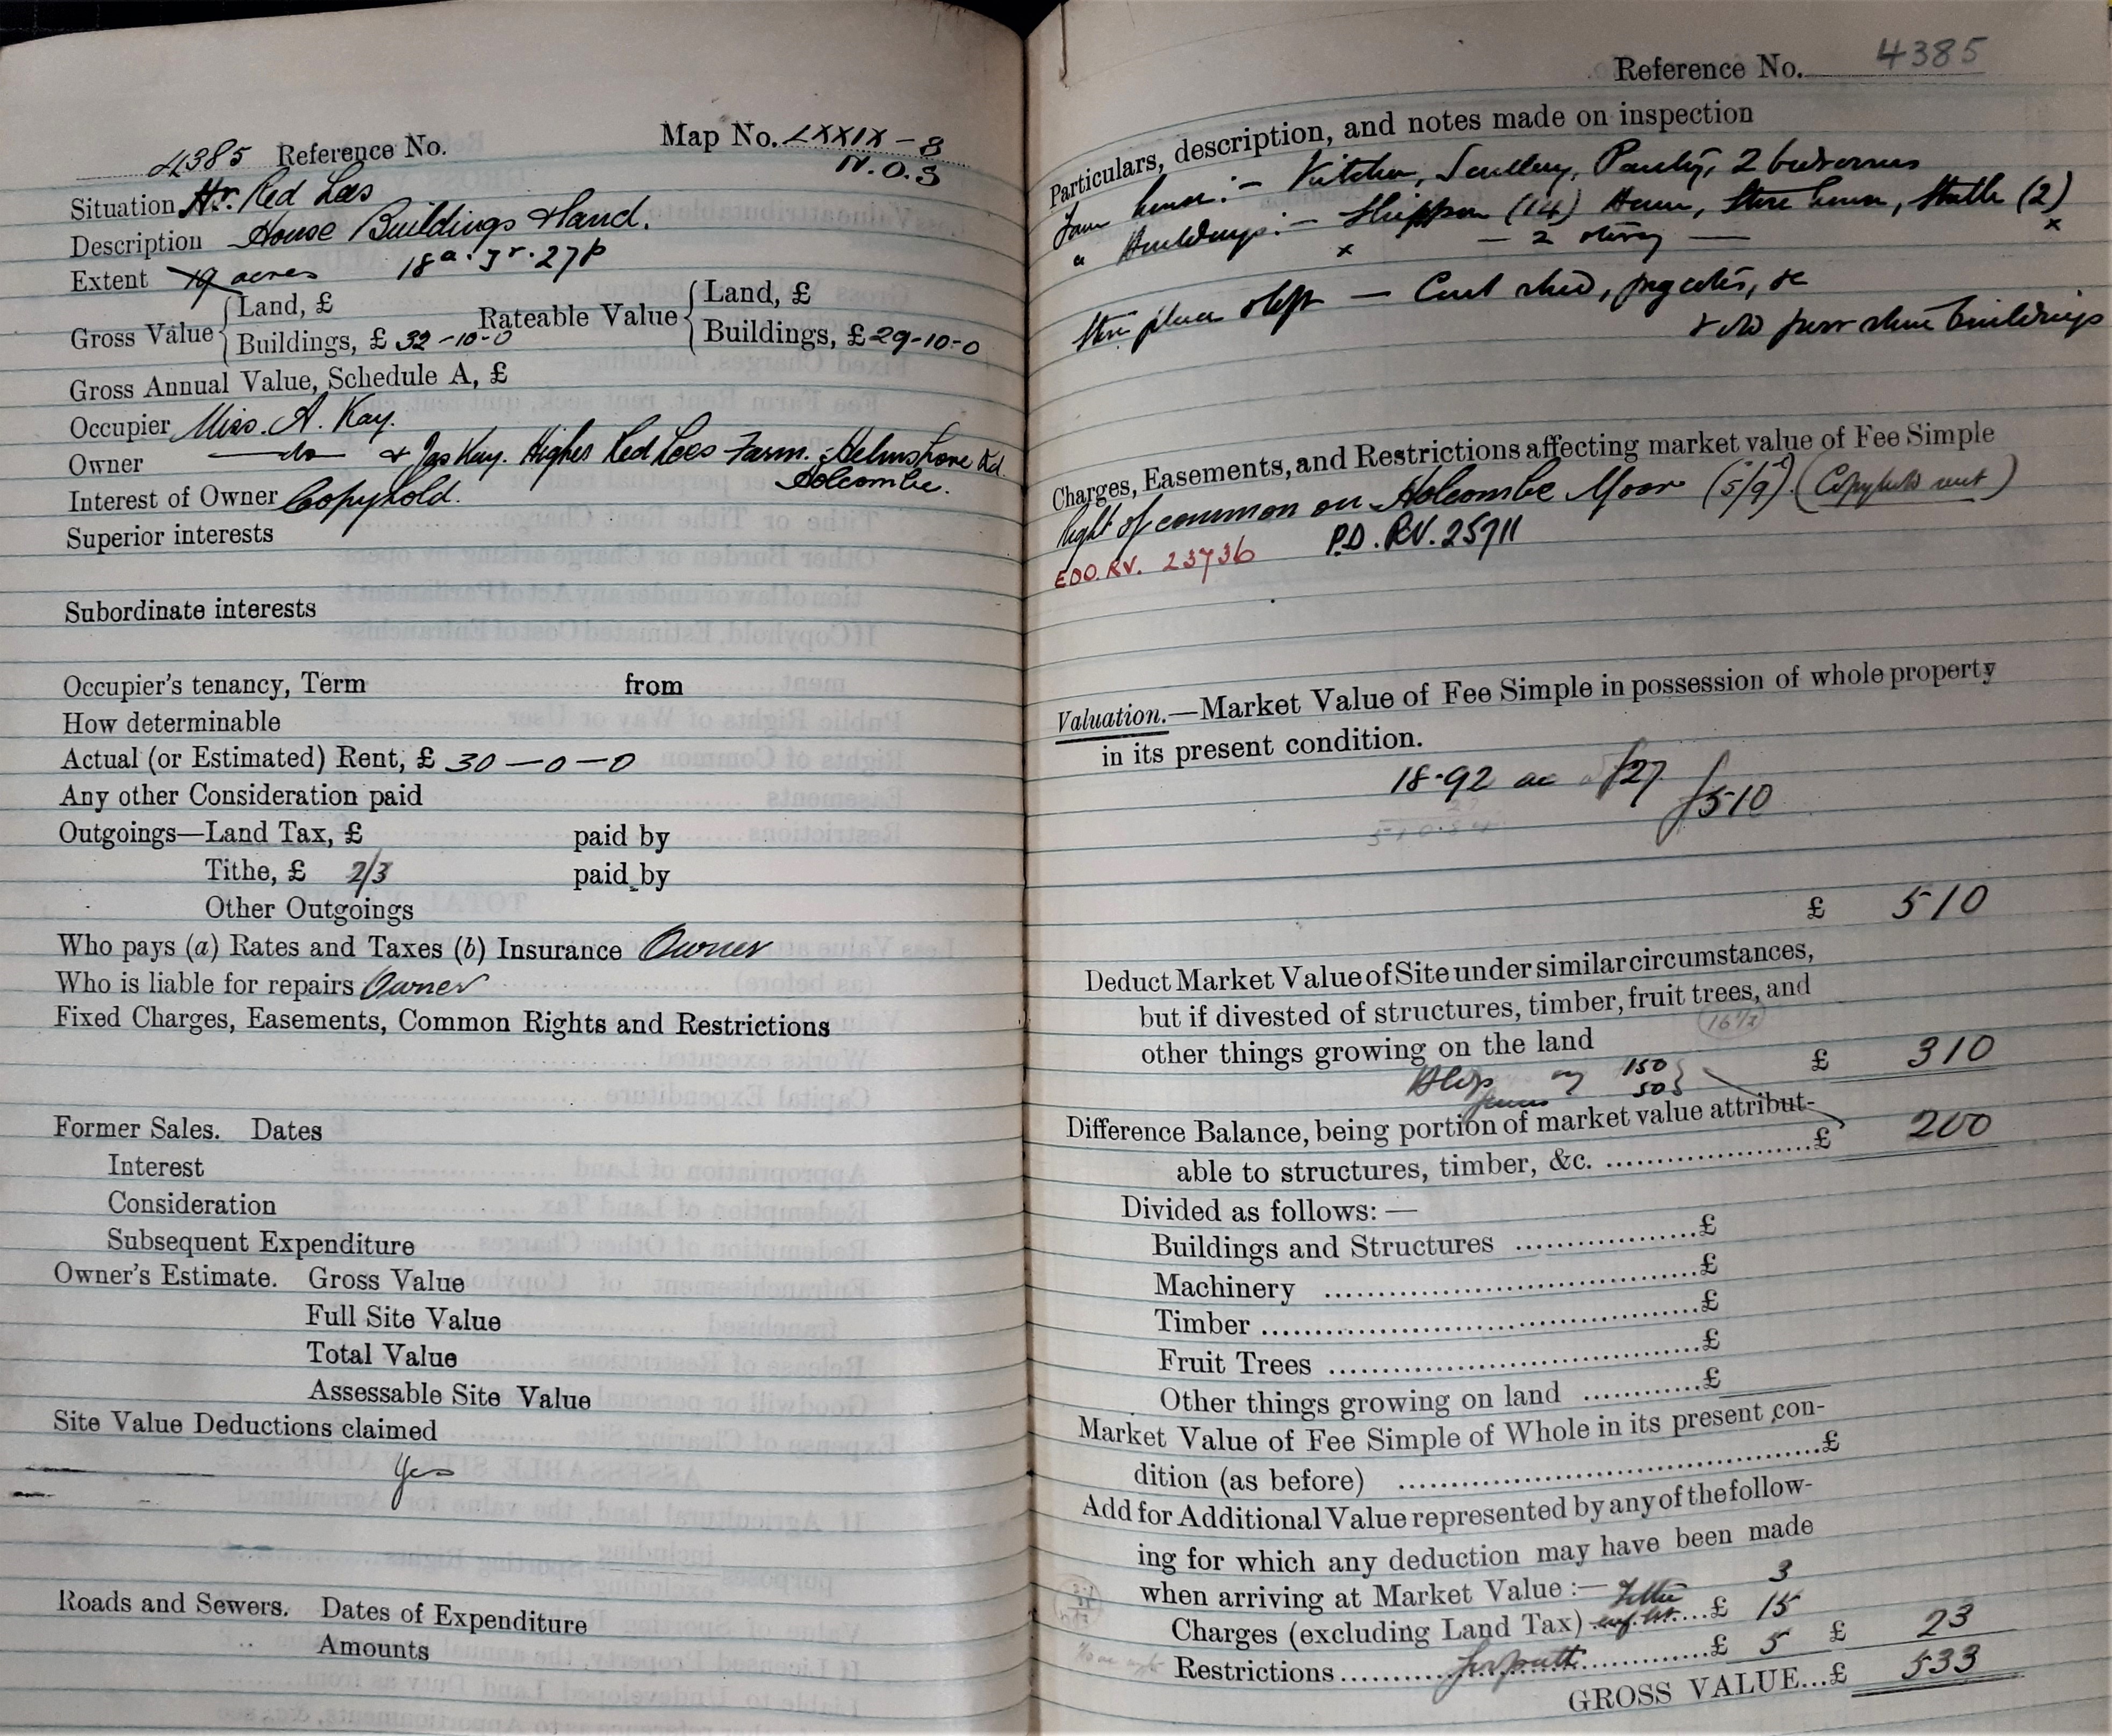 4385 Reference No. Map No. LXXIX - 8
N.O.3
Situation Hr. Red Lees
Description House Buildings & land.
Extent 19 acres 18a. 3r. 27p
Gross Value { Land, £
Buildings, £ 32-10-0
Rateable Value { Land, £
Buildings, £ 29-10-0
Gross Annual Value, Schedule A, £
Occupier Miss. A. Kay.
Owner —do— & Jas Kay. Higher Red Lees Farm. Helmshore Rd.
Holcombe.
Interest of Owner Copyhold.
Superior interests
Subordinate interests
Occupier's tenancy, Term from
How determinable
Actual (or Estimated) Rent, £ 30—0—0
Any other Consideration paid
Outgoings—Land Tax, £ paid by
Tithe, £ 2/3 paid by
Other Outgoings
Who pays (a) Rates and Taxes (b) Insurance Owner
Who is liable for repairs Owner
Fixed Charges, Easements, Common Rights and Restrictions
Former Sales. Dates
Interest
Consideration
Subsequent Expenditure
Owner's Estimate. Gross Value
Full Site Value
Total Value
Assessable Site Value
Site Value Deductions claimed
Yes
Roads and Sewers. Dates of Expenditure
" Amounts
Reference No. 4385
Particulars, description, and notes made on inspection
Farm house:- Kitchen, Scullery, Pantry, 2 bedrooms
" Buildings:- Shippon (14) Barn, Store house, Stable (2)
x — 2 storey — x
Store place — Cart shed, pigcotes, &c
buildings
Charges, Easements, and Restrictions affecting market value of Fee Simple
Right of common on Holcombe Moor (5/9). (Copyhold rent)
EDO. RV. 23736 P.D. RV. 25711
Valuation.—Market Value of Fee Simple in possession of whole property
in its present condition.
18.92 ac £27
£510
27
510.84
£ 510
Deduct Market Value of Site under similar circumstances,
but if divested of structures, timber, fruit trees, and
other things growing on the land
£ 310
Bldgs 150
50
Difference Balance, being portion of market value attribut-
able to structures, timber, &c. ....................£ 200
Divided as follows:—
Buildings and Structures ..................£
Machinery .....................................£
Timber ...........................................£
Fruit Trees .....................................£
Other things growing on land ............£
Market Value of Fee Simple of Whole in its present con-
dition (as before) ..........................................£
Add for Additional Value represented by any of the follow-
ing for which any deduction may have been made
when arriving at Market Value :— Tithe 3
Charges (excluding Land Tax) .....£ 15
Restrictions ...............................£ 5 £ 23
GROSS VALUE...£ 533